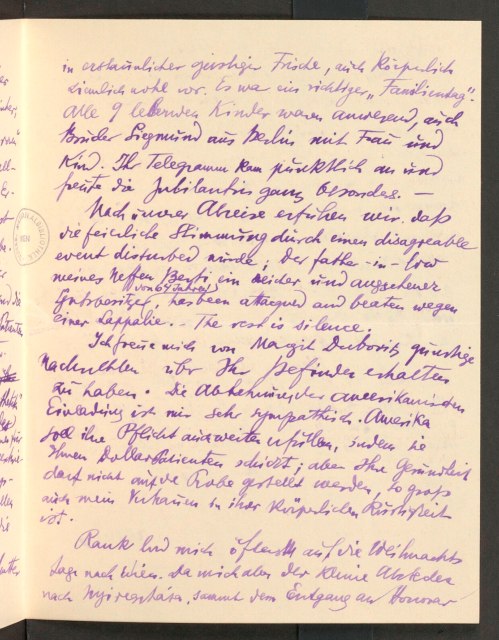 in erstaunlicher geistiger Frische, auch körperlich
ziemlich wohl vor. Es war ein richtiger „Familientag".
Alle 9 lebenden Kinder waren anwesend, auch
Bruder Siegmund aus Berlin mit Frau und
Kind. Ihr Telegramm kam pünktlich an und
freute die Jubilantin ganz besonders. —
Nach unserer Abreise erfuhren wir, daß
die feierliche Stimmung durch einen disagreable
event disturbed wurde; der father-in-law
meines Neffen Berti, ein reicher und angesehener
(von 64 Jahren)
Gutsbesitzer, has been attaqued and beaten wegen
einer Lappalie. — The rest is silence.
Ich freue mich von Margit Dubovitz günstige
Nachrichten über Ihr Befinden erhalten
zu haben. Die Ablehnung der amerikanischen
Einladung ist mir sehr sympathisch. Amerika
soll ihre Pflicht auch weiter erfüllen, indem sie
Ihnen Dollarpatienten schickt; aber Ihre Gesundheit
darf nicht auf die Probe gestellt werden, so groß
auch mein Vertrauen in Ihre körperliche Rüstigkeit
ist.
Rank lud mich öfters auf die Weihnachts
tage nach Wien. Da mich aber der kleine Abstecher
nach Nyiregyháza, sammt dem Entgang an Honorar